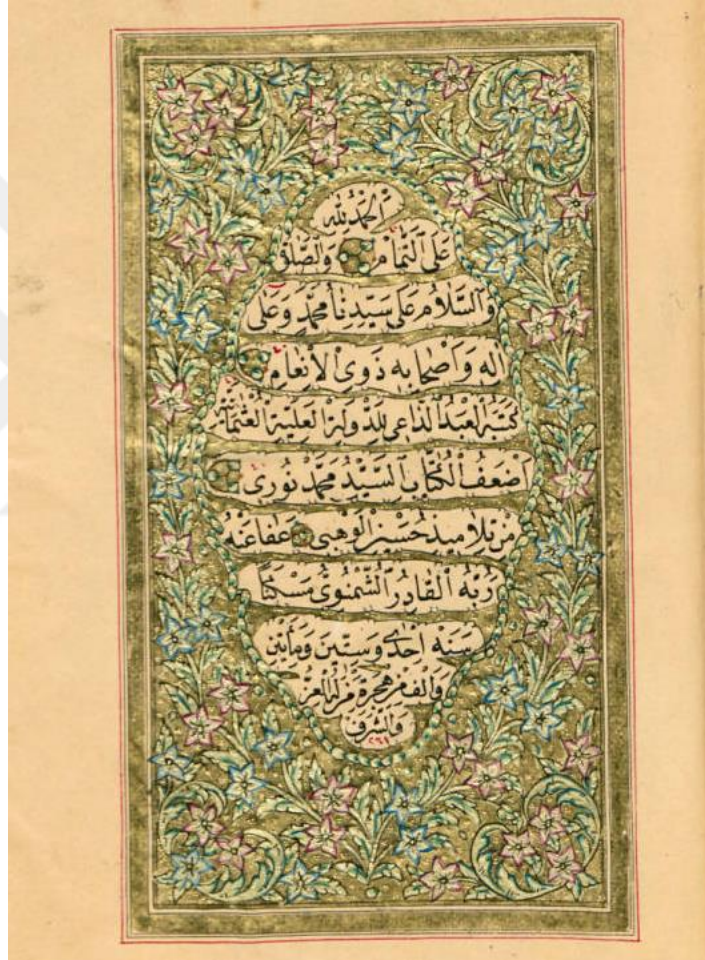 اَلْحَمْدُ لِلّٰهِ
عَلَى التَّمَامِ وَالصَّلٰوةُ
وَالسَّلَامُ عَلٰى سَيِّدِنَا مُحَمَّدٍ وَعَلٰى
اٰلِهِ وَاَصْحَابِهِ ذَوِى الْاِنْعَامِ
كَتَبَهُ الْعَبْدُ الدَّاعِى لِلدَّوْلَةِ الْعَلِيَّةِ الْعُثْمَانِيَّةِ
اَضْعَفُ الْكُتَّابِ السَّيِّدُ مُحَمَّدْ نُورِى
مِنْ تَلَامِيذِ حُسَيْنِ الْوَهْبِى عَفَا عَنْهُ
رَبُّهُ الْقَادِرُ الشُّمْنُوِىُّ مَسْكَنًا
سَنَه اِحْدٰى وَسِتِّينَ وَمِأَتَيْنِ
وَاَلْف مِنْ هِجْرَةِ مَنْ لَهُ الْعِزُّ
وَالشَّرَفُ
٢٦١